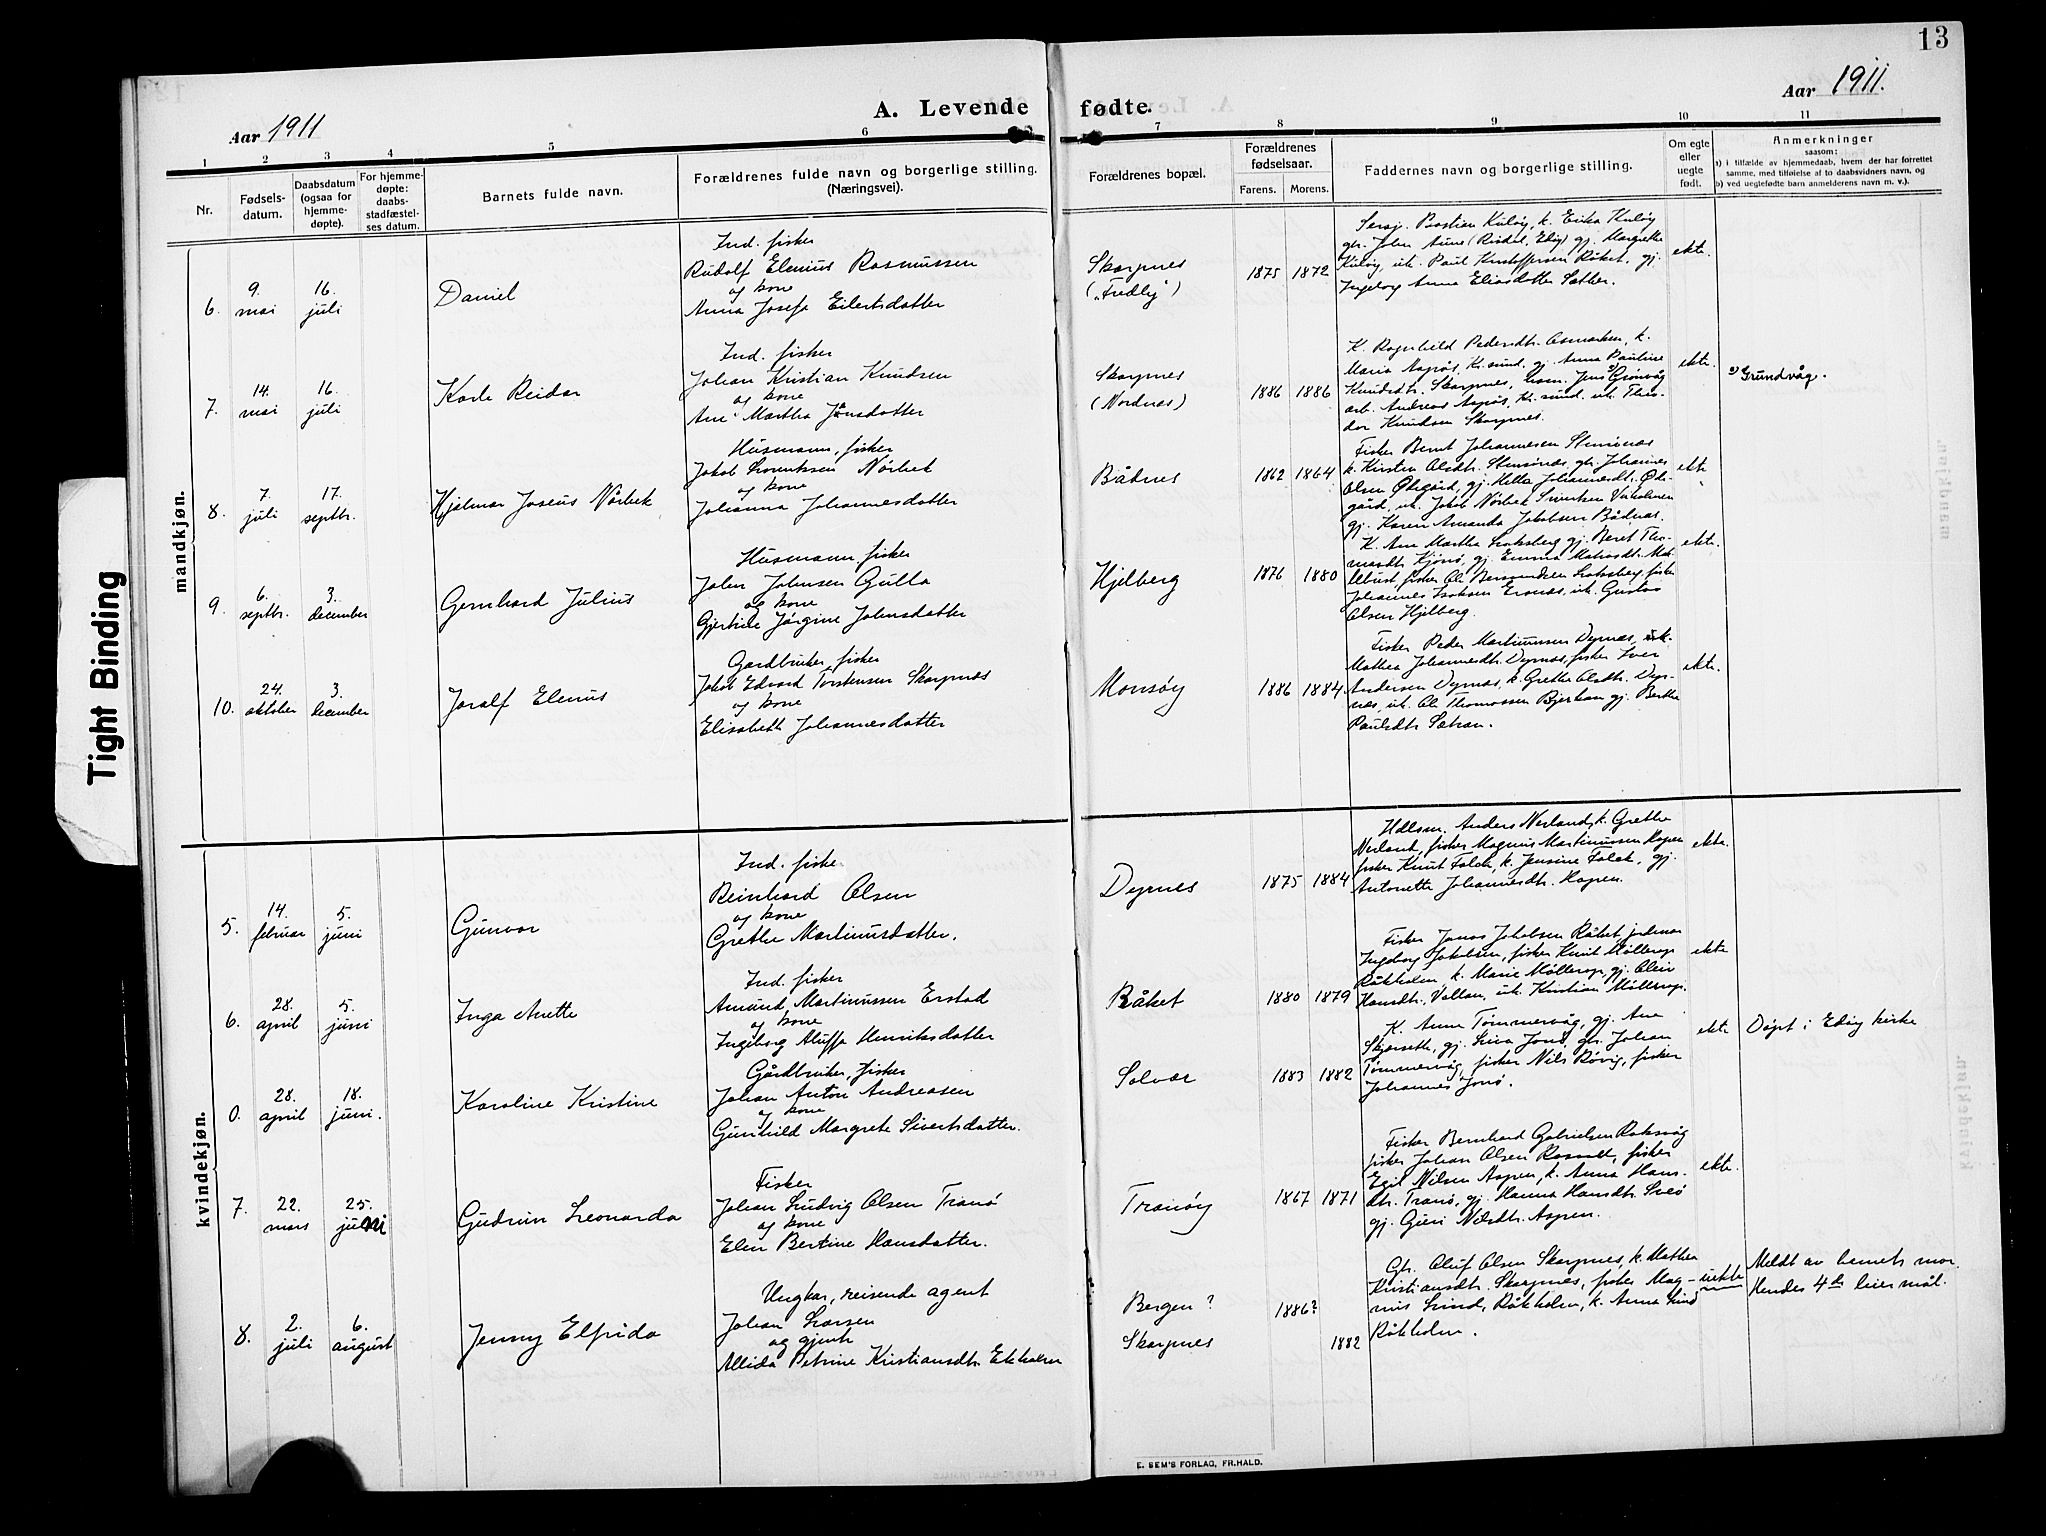 13
Aar 1911
A. Levende fødte.
Aar 1911.
1 2 3 4 5 6 7 8 9 10 11
Nr.
Fødsels-
datum.
Daabsdatum
(ogsaa for
hjemme-
døpte).
For hjemme-
døpte:
daabs-
stadfæstel-
ses datum.
Barnets fulde navn.
Forældrenes fulde navn og borgerlige stilling.
(Næringsvei).
Forældrenes bopæl.
Forældrenes
fødselsaar.
Farens. Morens.
Faddernes navn og borgerlige stilling.
Om egte
eller
uegte
født.
Anmerkninger
saasom:
a) i tilfælde av hjemmedaab, hvem der har forrettet
samme, med tilføielse af to daabsvidners navn, og
b) ved uegtefødte barn anmelderens navn m. v.).
mandkjøn.
6.
9.
mai
16.
juli
Daniel
Ind. fisker
Rudolf Elenius Rasmussen
og kone
Anna Josefa Eilertsdatter
Skarpnes
("Fredly")
1875 1872
Kuløy, k. Erika Kuløy
gbr. John Aune
Kuløy, uk. Paul Kristoffersen Råket, gj.
Ingeborg Anna Eliasdatter Sæther.
ekte.
7.
14.
mai
16.
juli
Kåre Reidar
Ind. fisker
Johan Kristian Knudsen
og kone
Ane Martha Jonsdatter
Skarpnes
(Nordnes)
1886 1886
K. Ragnhild Pedersdtr. Asmarken, k.
Maria Aspøs, Kr.sund, gj. Anna Pauline
Knudsdtr. Skarpnes, hosm. Jens Grønvåg
arb. Andreas Aspøs, Kr.sund. uk. Theo-
dor Knudsen Skarpnes.
ekte.
Grundvåg.
8.
7.
juli
17.
septbr.
Hjalmar Joseus Nørbek
Husmann, fisker
Jakob Lorentsen Nørbek
og kone
Johanna Johannesdatter
Bådnes
1862 1864
Fisker Bernt Johannesen Stensønæs
k. Kirsten Olsdtr. Stensønæs, gbr. Johannes
Olsen Ødegård, gj. Helle Johannesdtr. Øde-
gård, uk. Jakob Nørbek
gj. Karen Amanda Jakobsen Bådnæs.
ekte
9.
6.
septbr.
3.
december
Gernhard Julius
Husmann, fisker
John Johnsen Gulla
og kone
Gjertrude Jørgine Johnsdatter
Hjelberg
1876 1880
K. Ane Martha Loksberg gj. Beret Tho-
masdtr. Kjønø, gj. Emma
fisker Ol. Loksberg, fisker
Johannes Isaksen Ernæs, uk. Gustav
Olsen Hjelberg.
ekte.
10.
24.
oktober
3.
december
Joralf Elenus
Gardbruker, fisker
Jakob Edvard Torstensen Skarpnæs
og kone
Elisabeth Johannesdatter
Monsøy
1886 1884
Fisker Peder Martinussen Dyrnæs, k.
Mathea Johannesdtr. Dyrnæs, fisker Iver
Andersen Dyrnæs, k. Grethe Olsdtr. Dyr-
næs, uk. Ole Thomassen Bjerkan gj. Berthe
Paulsdtr. Sætran.
ekte.
kvindekjøn.
5.
14.
februar
5.
juni
Gunvor
Ind. fisker
Reinhard Olsen
og kone
Grethe Martinusdatter.
Dyrnes
1875 1884
Hdlsm. Anders Nerland, k. Grethe
Nerland, fisker Magnus Martinussen Hopen
fisker Knut Falck, k. Jensine Falck, gj.
Antonette Johannesdtr. Hopen.
ekte.
6.
28.
april
5.
juni
Inga Anette
Ind. fisker
Amund Martinussen Erstad
og kone
Ingeborg Aluffa Henriksdatter
Råket
1880 1879
Fisker Jonas Jakobsen Råket, jordmor
Ingeborg Jakobsen, fisker Knut Møllerop
Råkholm, k. Marie Møllerop, gj. Oline
Hansdtr. Vollan, uk. Kristian Møllerop.
ekte
0.
28.
april
18.
juni.
Karoline Kristine
Gårdbruker, fisker
Johan Anton Andreasen
og kone
Gunhild Margrete Sivertsdatter.
Solvær
1883 1882
K. Anne Tømmervåg, gj. Ane
Skjørseth, gj. Lina Jonø, gbr. Johan
Tømmervåg, fisker Nils Røvig, fisker
Johannes Jonø.
ekte
Døpt i Edøy kirke
7.
22.
mars
25.
juni
Gudrun Leonarda
Fisker
Johan Ludvig Olsen Tranø
og kone
Elen Bertine Hansdatter.
Tranøy
1867 1871
Fisker Bernhard Gabrielsen Roksvåg
fisker Johan Olsen Rosvoll, fisker
Egil Nilsen Aspen, k. Anna Hans-
dtr. Tranø, gj. Hanna Hansdtr. Sveø
gj. Guri Nilsdtr. Aspen.
ekte.
8.
2.
juli
6.
august
Jenny Elfrida
Ungkar, reisende agent
Johan Larsen
og gjente
Allida Petrine Kristiansdtr. Ekholm
Bergen?
Skarpnes
1886?
1882
Gbr. Oluf Olsen Skarpnes, k. Mathea
Kristiansdtr. Skarpnes, fisker Mag-
nus Lind, Råkholm, k. Anna Lind
Råkholm.
uekte
Meldt av barnets mor.
Hendes 4de leiermål.
E. SEM'S FORLAG, FR.HALD.
Tight Binding